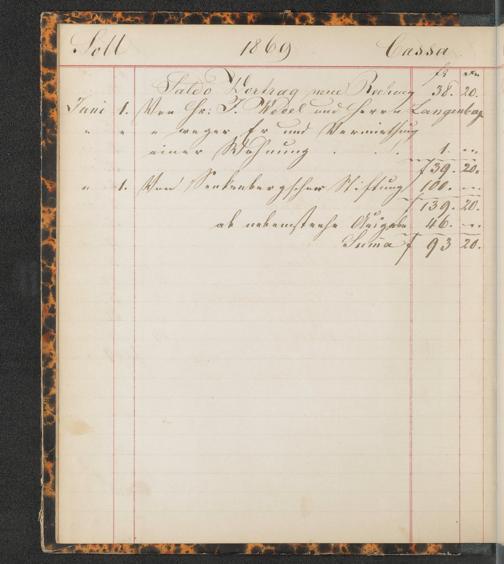 Soll 1869 Cassa
f x
Saldo Vortrag neue Rechnung 38. 20.
Juni 1. Von Hr: J. und Herrn Langenbach
" " " wegen Er und Vermiethung
einer Wohnung . . . 1. "
f 39. 20.
" 1. Von Senkenbergscher Stiftung 100. "
f 139. 20.
ab nebenstehe Ausgabe 46. "
Suma f 93 20.